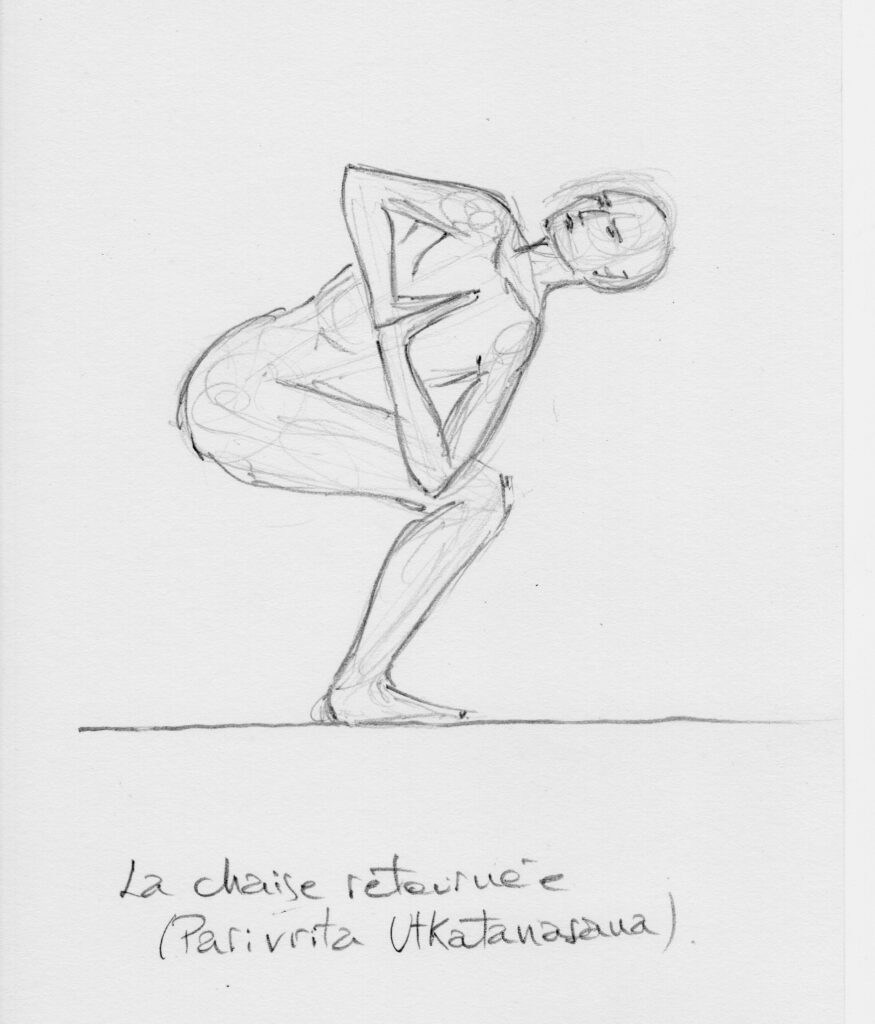 La chaise retournée
(Parivrita Utkatanasana).